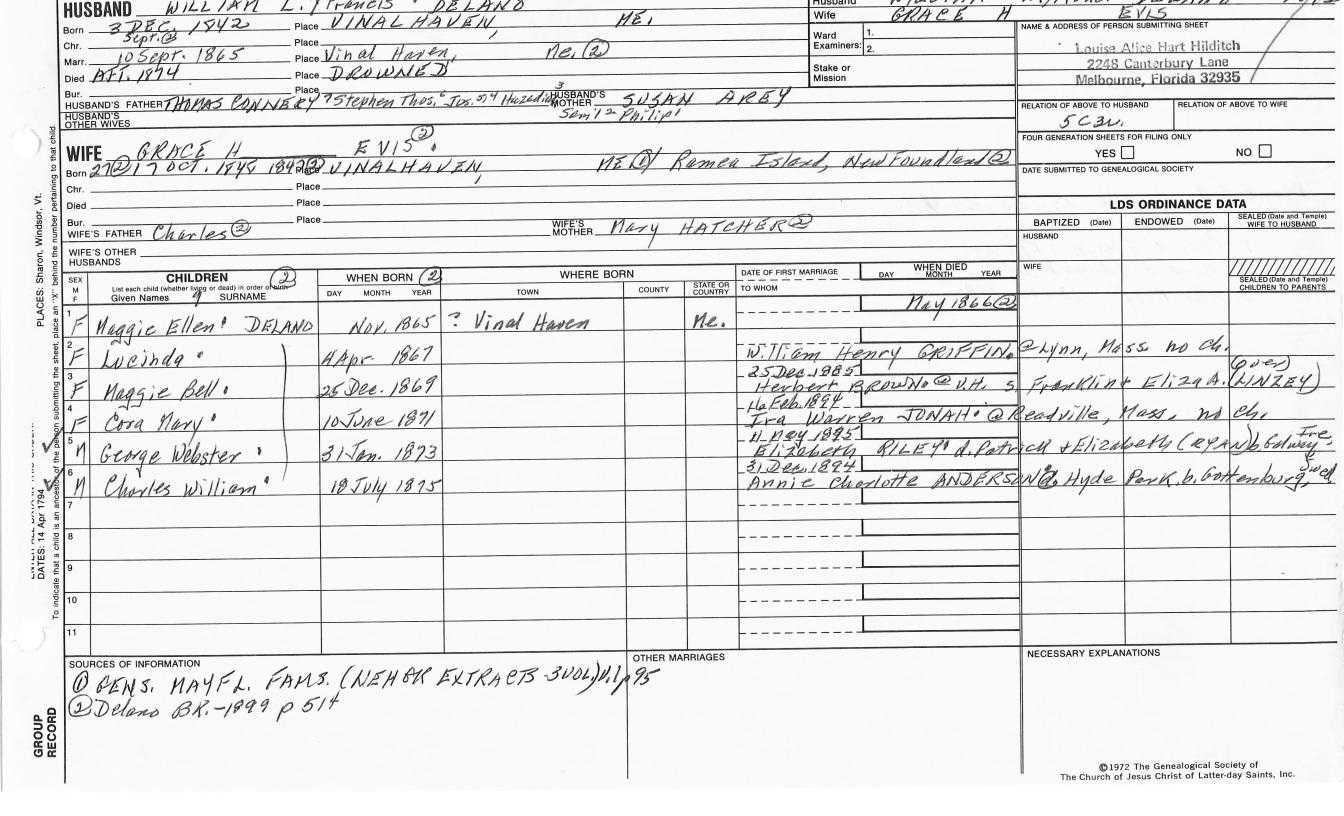 HUSBAND WILLIAM L. Francis DELANO
Husband
Born 3 DEC. 1842 Place VINALHAVEN, ME.
Wife GRACE H EVIS
Sept. (2)
Chr. Place
Ward Examiners: 1.
2.
Marr. 10 Sept. 1865 Place Vinal Haven, Me. (2)
Died AFT. 1874 Place DROWNED
Stake or Mission
Bur. Place
HUSBAND'S FATHER THOMAS CONNERY ? Stephen Thos.6 Jos.5,4
3 Sam'l2 Philip1
HUSBAND'S MOTHER SUSAN AREY
HUSBAND'S OTHER WIVES
NAME & ADDRESS OF PERSON SUBMITTING SHEET
Louise Alice Hart Hilditch
2248 Canterbury Lane
Melbourne, Florida 32935
RELATION OF ABOVE TO HUSBAND
RELATION OF ABOVE TO WIFE
5C3r.
FOUR GENERATION SHEETS FOR FILING ONLY
YES NO
DATE SUBMITTED TO GENEALOGICAL SOCIETY
WIFE GRACE H EVIS (2)
Born 27(2) 17 OCT. 1848 1842(2) Place VINALHAVEN, ME(1)/ Ramea Island, New Foundland(2)
Chr. Place
Died Place
Bur. Place
WIFE'S FATHER Charles (2)
WIFE'S MOTHER Mary HATCHER (2)
WIFE'S OTHER HUSBANDS
LDS ORDINANCE DATA
BAPTIZED (Date) ENDOWED (Date) SEALED (Date and Temple) WIFE TO HUSBAND
HUSBAND
WIFE
SEALED (Date and Temple) CHILDREN TO PARENTS
SEX M F
CHILDREN (2)
List each child (whether living or dead) in order of birth
Given Names SURNAME
WHEN BORN (2)
DAY MONTH YEAR
WHERE BORN
TOWN COUNTY STATE OR COUNTRY
DATE OF FIRST MARRIAGE
TO WHOM
WHEN DIED
DAY MONTH YEAR
May 1866 (2)
1 F Maggie Ellen DELANO Nov. 1865 ? Vinal Haven Me.
2 F Lucinda 4 Apr 1867 William Henry GRIFFIN @ Lynn, Mass no ch.
25 Dec. 1885 (over)
3 F Maggie Bell 25 Dec. 1869 Herbert BROWN @ V.H. s Franklin + Eliza A. (LINZEY)
16 Feb. 1894
4 F Cora Mary 10 June 1871 Ira Warren JONAH @ Readville, Mass. no ch.
11 May 1895
5 M George Webster 31 Jan. 1873 Elizabeth RILEY d. Patrick + Elizabeth (RYAN) b. Galway, Ire.
31 Dec. 1894
6 M Charles William 18 July 1875 Annie Charlotte ANDERSON @ Hyde Park. b. Gottenburg, Swed
7
8
9
10
11
SOURCES OF INFORMATION
(1) GENS. MAYFL. FAMS. (NEHGR EXTRACTS 3VOL) V.1, p 95
(2) Delano BR.-1899 p 514
OTHER MARRIAGES
NECESSARY EXPLANATIONS
©1972 The Genealogical Society of
The Church of Jesus Christ of Latter-day Saints, Inc.
PLACES: Sharon, Windsor, Vt.
DATES: 14 Apr 1794
To indicate that a child is an ancestor of the person submitting the sheet, place an "X" behind the number pertaining to that child.
GROUP RECORD